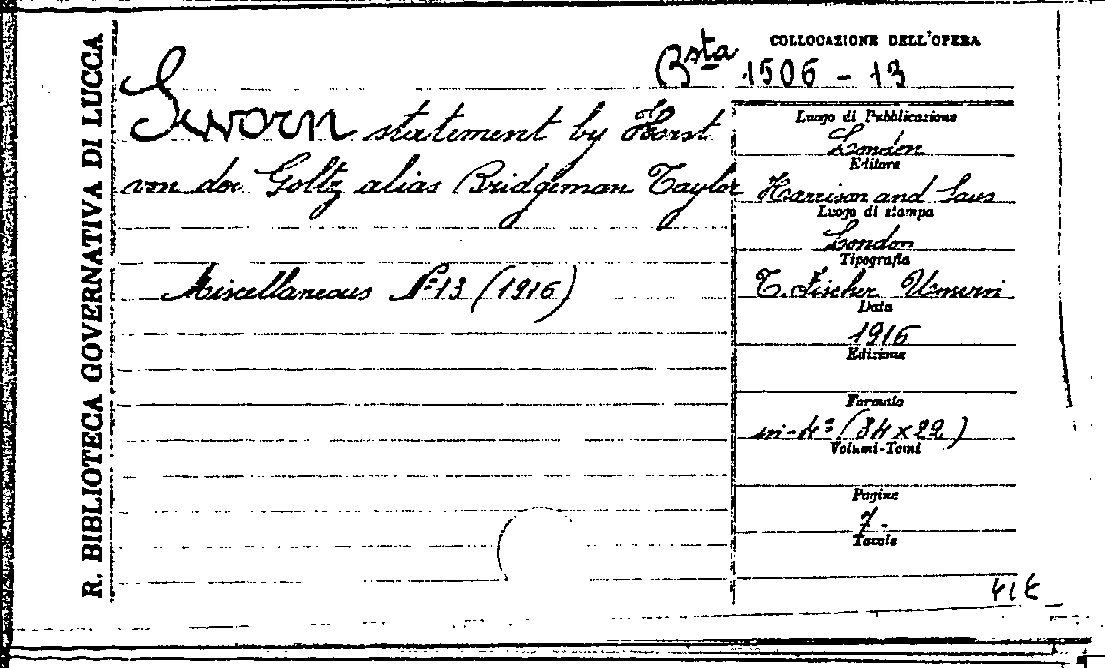 R. BIBLIOTECA GOVERNATIVA DI LUCCA
COLLOCAZIONE DELL'OPERA
Bsta 1506 - 13
Sworn statement by Horst
von der Goltz alias Bridgeman Taylor
Miscellaneous N° 13 (1916)
Luogo di Pubblicazione
London
Editore
Harrison and Sons
Luogo di stampa
London
Tipografia
T. Fischer
Data
1916
Edizione
Formato
in-4° (34 x 22)
Volumi-Tomi
Pagine
7.
Tavole